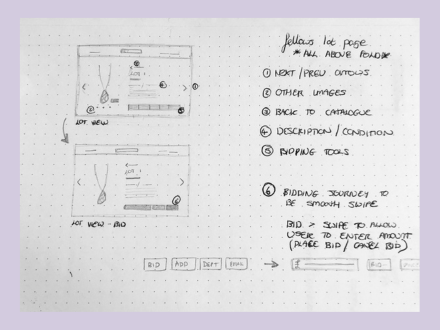 fellows lot page
* ALL ABOVE FOLD *
① NEXT / PREV ARROWS
② OTHER IMAGES
③ BACK TO CATALOGUE
④ DESCRIPTION / CONDITION
⑤ BIDDING TOOLS
LOT VIEW
⑥ BIDDING JOURNEY TO
BE SMOOTH SWIPE
LOT VIEW - BID
BID > SWIPE TO ALLOW
USER TO ENTER AMOUNT
(PLACE BID / CANCEL BID)
BID ADD DEPT → £ BID